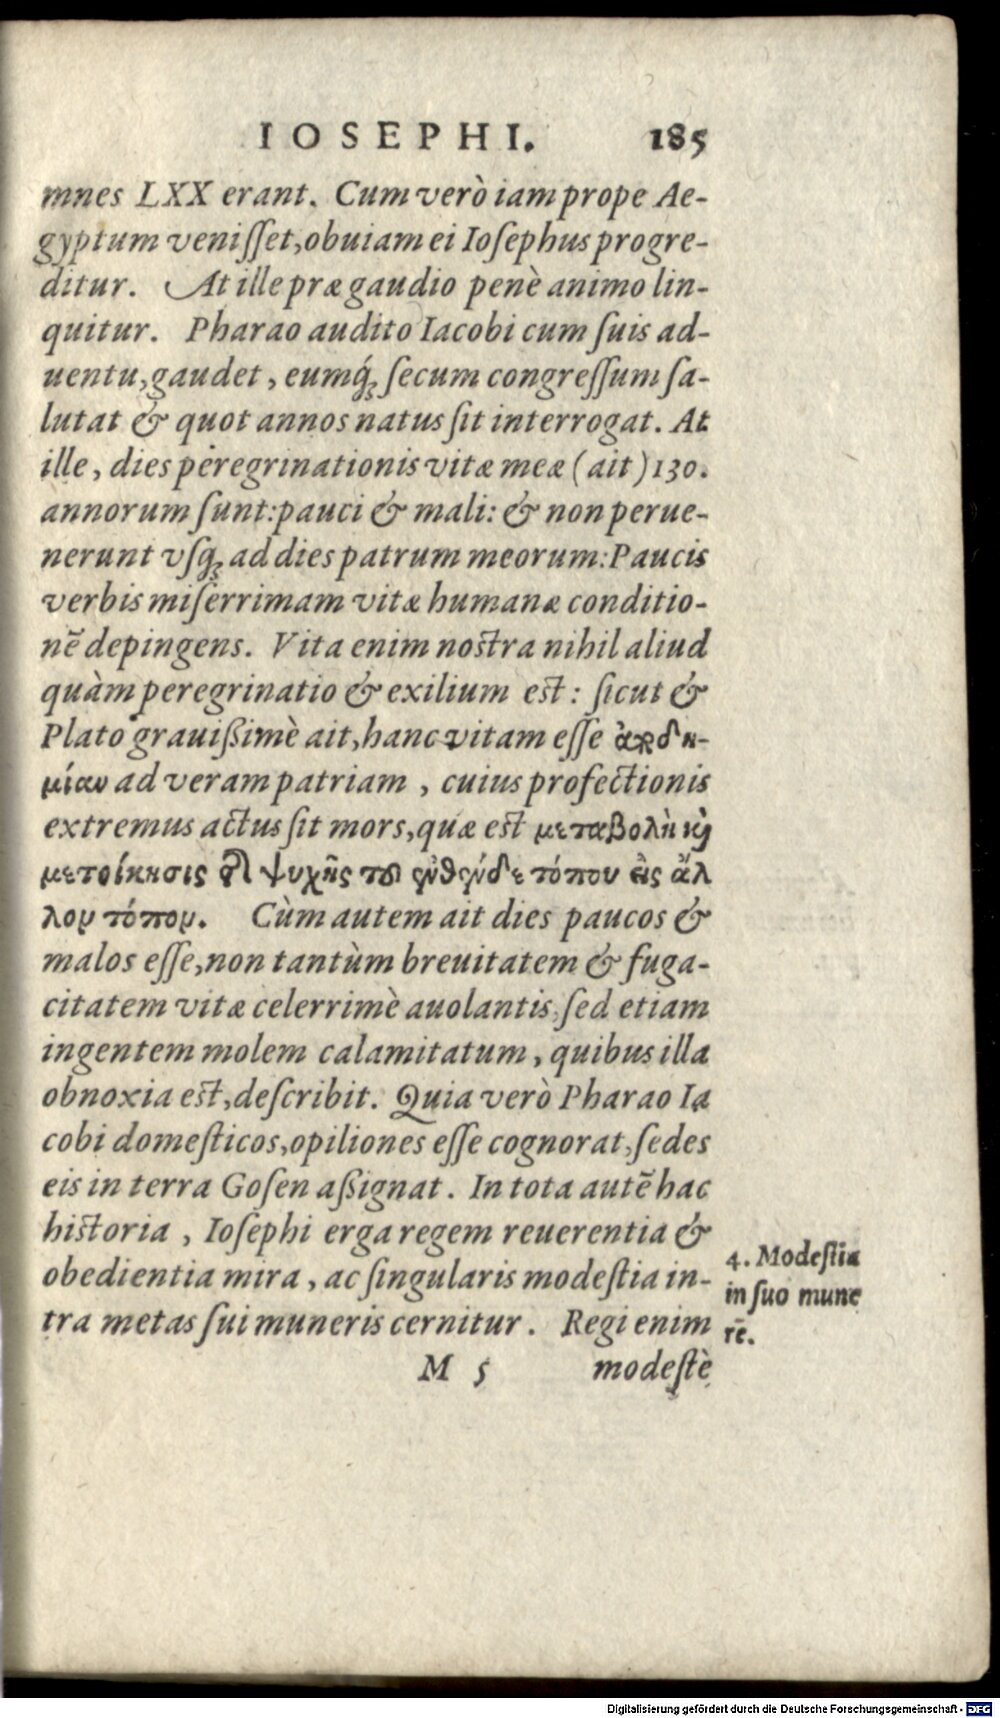 IOSEPHI. 185
mnes LXX erant. Cum verò iam prope Ae-
gyptum veniſſet, obuiam ei Ioſephus progre-
ditur. At ille præ gaudio penè animo lin-
quitur. Pharao audito Iacobi cum ſuis ad-
uentu, gaudet, eumq́; ſecum congreſſum ſa-
lutat & quot annos natus ſit interrogat. At
ille, dies peregrinationis vitæ meæ (ait) 130.
annorum ſunt: pauci & mali: & non perue-
nerunt vſq; ad dies patrum meorum: Paucis
verbis miſerrimam vitæ humanæ conditio-
nē depingens. Vita enim noſtra nihil aliud
quàm peregrinatio & exilium eſt: ſicut &
Plato grauiſsimè ait, hanc vitam eſſe
μίαν ad veram patriam, cuius profectionis
extremus actus ſit mors, quæ eſt μεταβολὴ καὶ
μετοίκησις τῆ ψυχῆς τοῦ ἐνθένδε τόπου εἰς ἄλ
λον τόπον. Cùm autem ait dies paucos &
malos eſſe, non tantùm breuitatem & fuga-
citatem vitæ celerrimè auolantis, ſed etiam
ingentem molem calamitatum, quibus illa
obnoxia eſt, deſcribit. Quia verò Pharao Ia
cobi domeſticos, opiliones eſſe cognorat, ſedes
eis in terra Goſen aſsignat. In tota autē hac
hiſtoria, Ioſephi erga regem reuerentia &
obedientia mira, ac ſingularis modeſtia in-
tra metas ſui muneris cernitur. Regi enim
4. Modeſtia
in ſuo mune
rē.
M 5 modeſtè
Digitalisierung gefördert durch die Deutsche Forschungsgemeinschaft - DFG